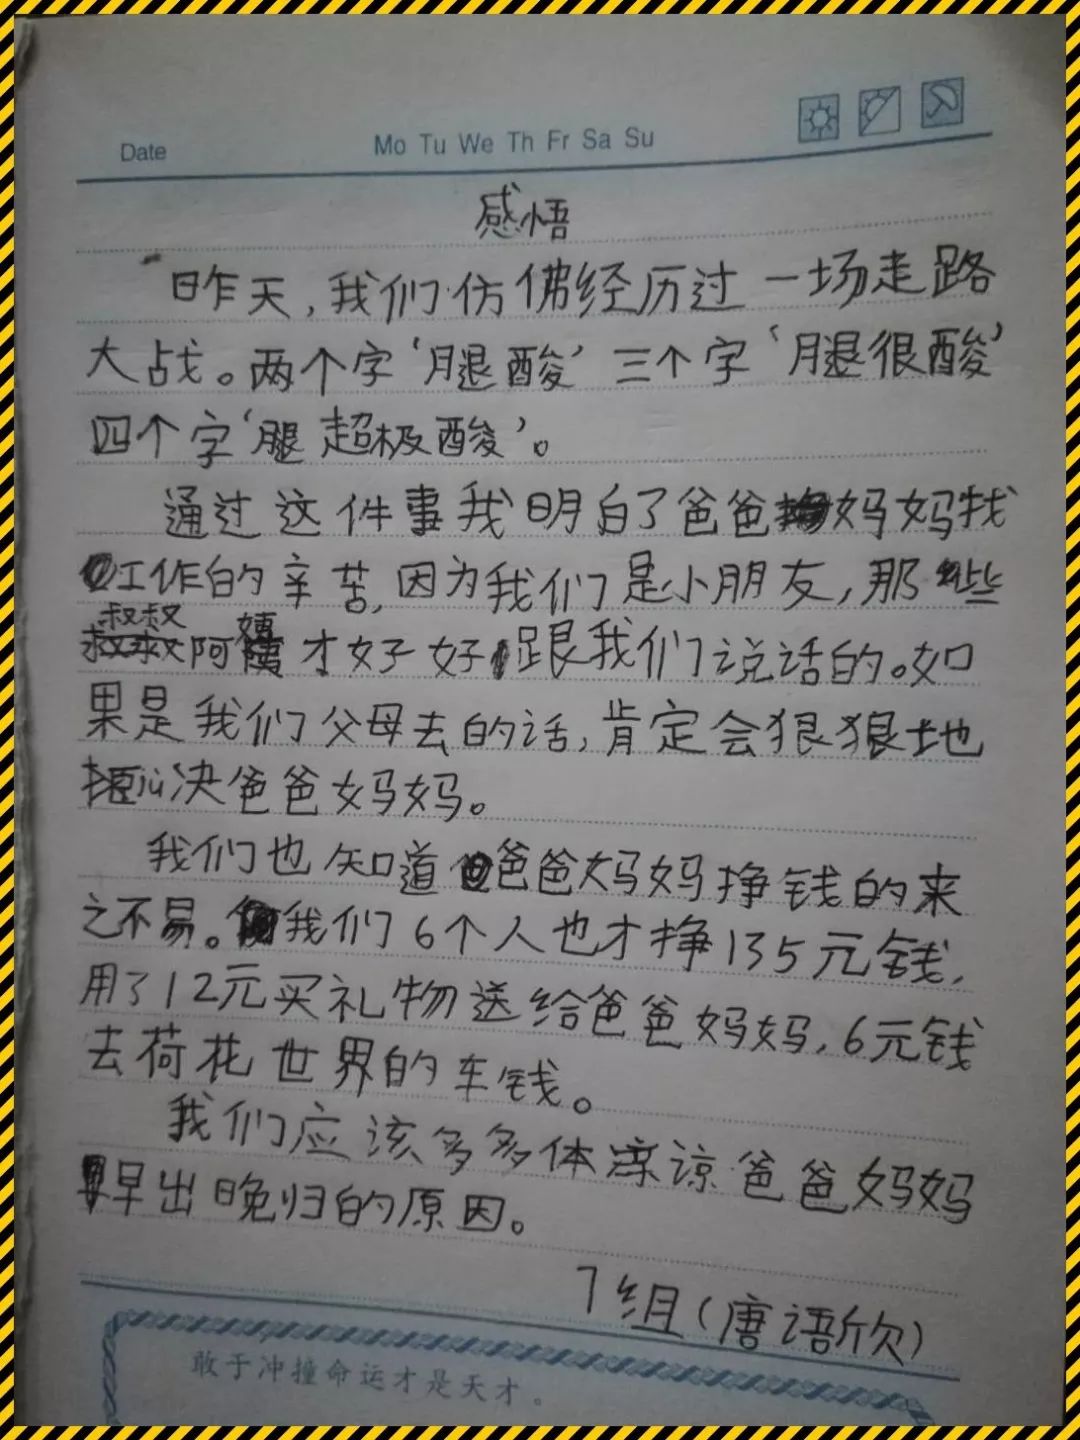 Date
Mo Tu We Th Fr Sa Su
感悟
昨天,我们仿佛经历过一场走路
大战。两个字‘腿酸’三个字‘腿很酸’
四个字‘腿超极酸’。
通过这件事我明白了爸爸妈妈找
工作的辛苦,因为我们是小朋友,那些
叔叔阿姨才好好跟我们说话的。如
果是我们父母去的话,肯定会狠狠地
拒决爸爸妈妈。
我们也知道爸爸妈妈挣钱的来
之不易。我们6个人也才挣135元钱,
用了12元买礼物送给爸爸妈妈,6元钱
去荷花世界的车钱。
我们应该多多体谅爸爸妈妈
早出晚归的原因。
7组(唐语欣)
敢于冲撞命运才是天才。